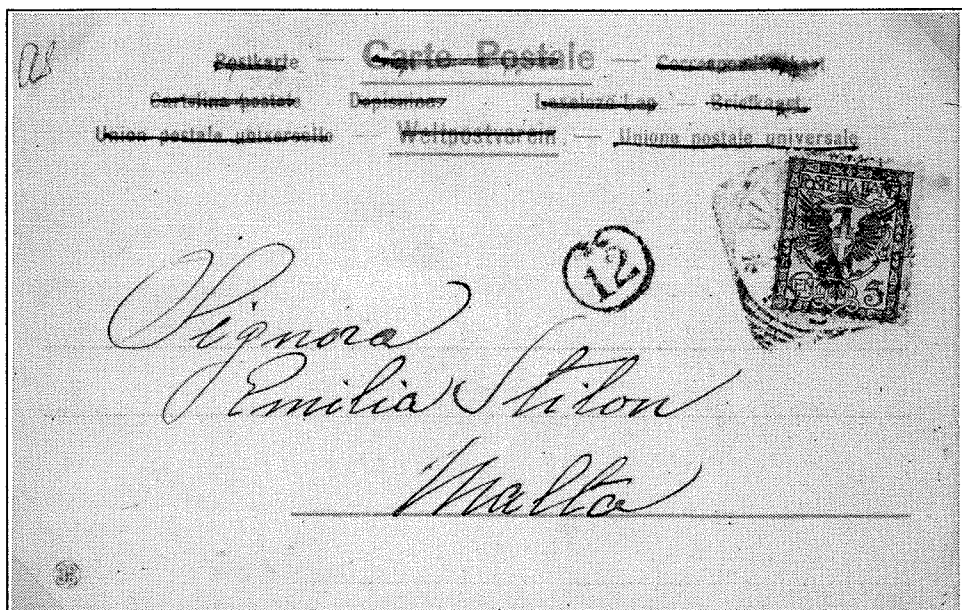 Postkarte — Carte Postale — Correspondenzkarte
Cartolina postale Dopisnice Levelező-Lap — Briefkaart
Union postale universelle — Weltpostverein — Unione postale universale
POSTE ITALIANE
5
12
Signora
Emilia Stilon
Malta